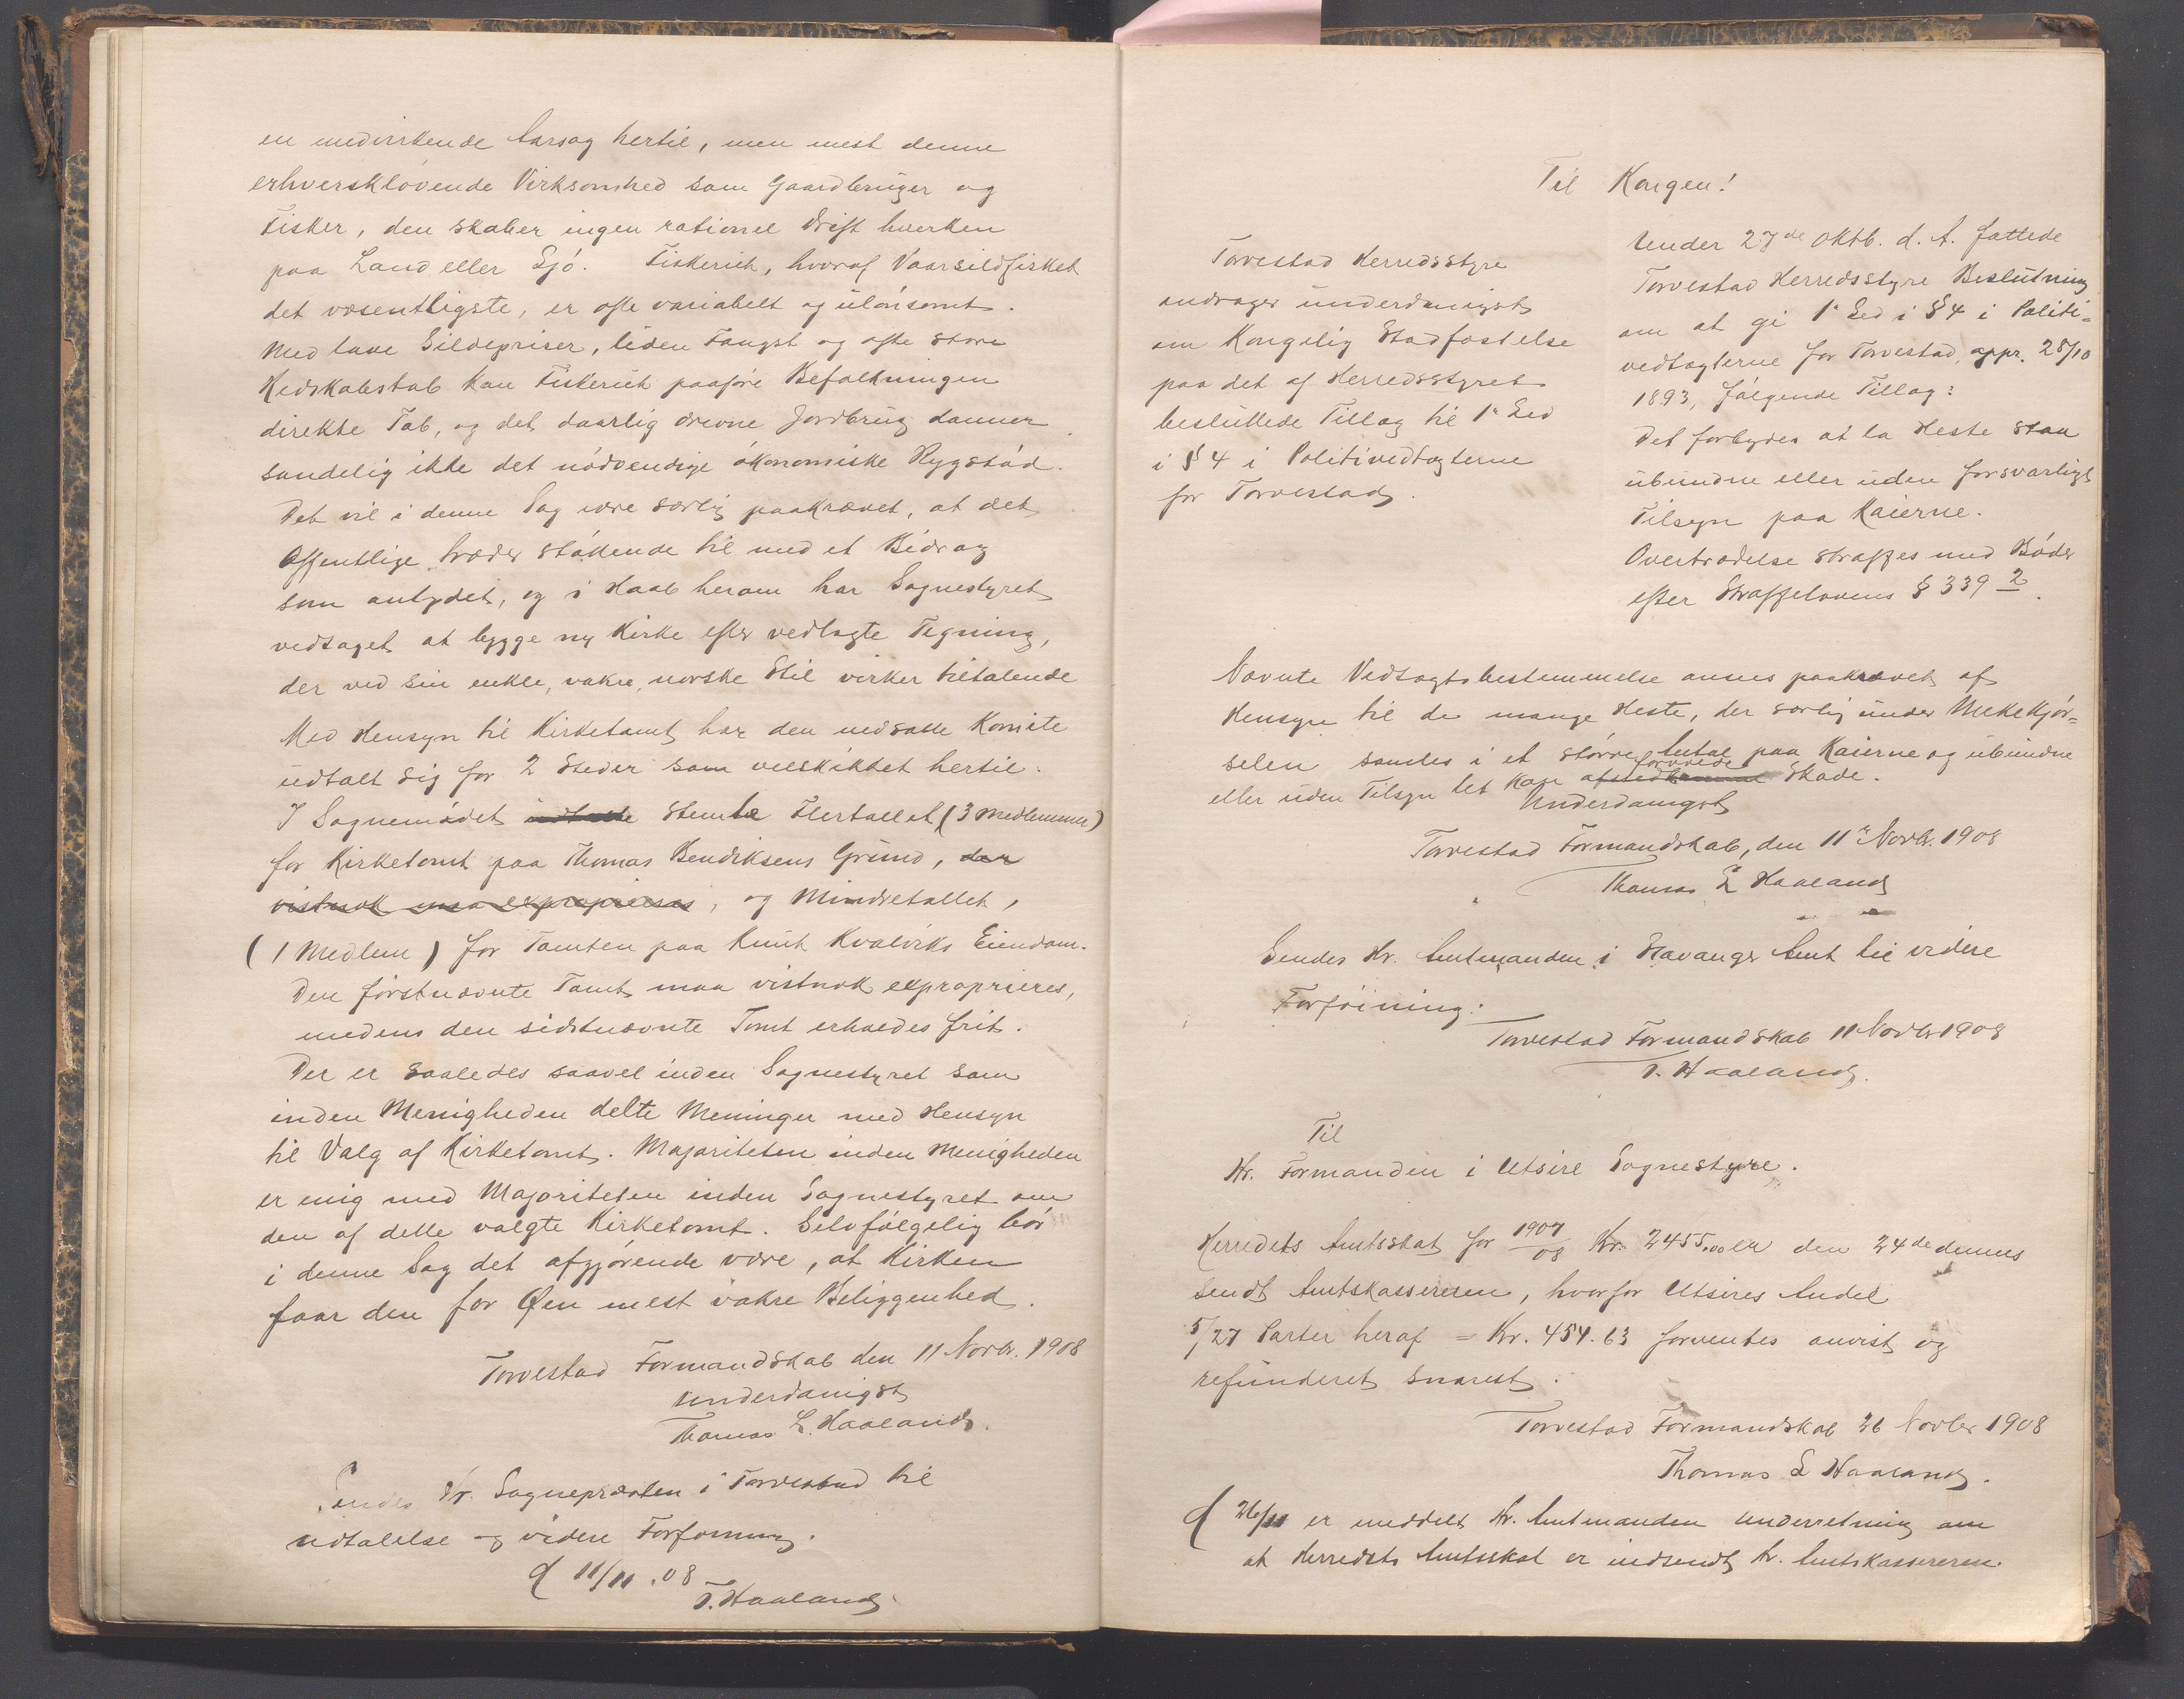 en medvirkende Aarsag hertil, men mest denne
erhverskløvende Virksomhed som Gaardbruger og
Fisker, den skaber ingen rationel Drift hverken
paa Land eller Sjø. Fiskeriet, hvoraf Vaarsildfisket
det væsentligste, er ofte variabelt og uløn̄somt.
Med lave Sildepriser, liden Fangst og ofte store
Redskabstab kan Fiskeriet paaføre Befolkningen
direkte Tab, og det daarlig drevne Jordbrug danner
sandelig ikke det nødvendige økonomiske Rygstød.
Det vil i denne Sag være særlig paakrævet, at det
Offentlige træder støttende til med et Bidrag
som antydet, og i Haab herom har Sognestyret
vedtaget at bygge ny Kirke efter vedlagte Tegning,
der ved sin enkle, vakre, norske Stil virker tiltalende
Med Hensyn til Kirketomt har den nedsatte Komite
udtalt sig for 2 Steder som velskikket hertil.
I Sognemødet udtalte stemte Flertallet (3 Medlemmer)
for Kirketomt paa Thomas Bendiksens Grund, der
vistnok maa exproprieres, og Mindretallet,
(1 Medlem) for Tomten paa Knut Kvalviks Eiendom.
Den førstnævnte Tomt maa vistnok exproprieres,
medens den sidstnævnte Tomt erholdes frit.
Der er saaledes saavel inden Sognestyret som
inden Menigheden delte Meninger med Hensyn
til Valg af Kirketomt. Majoriteten inden Menigheden
er enig med Majoriteten inden Sognestyret om
den af dette valgte Kirketomt. Selvfølgelig bør
i denne Sag det afgjørende være, at Kirken
faar den for Øen mest vakre Beliggenhed.
Torvestad Formandskab den 11 Novbr. 1908
underdanigst
Thomas L. Haaland.
Sendes Hr. Sognepræsten i Torvestad til
udtalelse og videre Forføining.
d 11/11.08
T. Haaland
Til Kongen!
Torvestad Herredsstyre
andrager underdanigst
om Kongelig Stadfæstelse
paa det af Herredsstyret
besluttede Tillæg til 1e Led
i § 4 i Politivedtægterne
for Torvestad.
Under 27de Oktb. d. A. fattede
Torvestad Herredsstyre Beslutning
om at gi 1e Led i § 4 i Politi-
vedtægterne for Torvestad, appr. 28/10
1893, følgende Tillæg:
Det forbydes at la Heste staa
ubundne eller uden forsvarligt
Tilsyn paa Kaierne.
Overtrædelse straffes med Bøder
efter Straffelovens § 339 2.
Nævnte Vedtægtsbestemmelse ansees paakrævet af
Hensyn til de mange Heste, der særlig under Mekekjør=
selen samles i et større Antal paa Kaierne og ubundne
forvolde
eller uden Tilsyn let kan afstedkomme Skade.
Underdanigst
Torvestad Formandskab, den 11te Novbr. 1908
Thomas L Haaland
Sendes Hr. Amtmanden i Stavanger Amt til videre
Forføining:
Torvestad Formandskab 11 Novbr 1908
T. Haaland.
Til
Hr. Formanden i Utsire Sognestyre.
Herredets Amtsskat for 1907/08 Kr. 2455,00 er den 24de dennes
sendt Amtskassereren, hvorfor Utsires Andel
5/27 Parter heraf = Kr. 454.63 forventes anvist og
refunderet snarest.
Torvestad Formandskab 26 Novbr 1908
Thomas L Haaland.
d 26/11 er meddelt Hr. Amtmanden Underretning om
at Herredets Amtsskat er indsendt Hr. Amtskassereren.